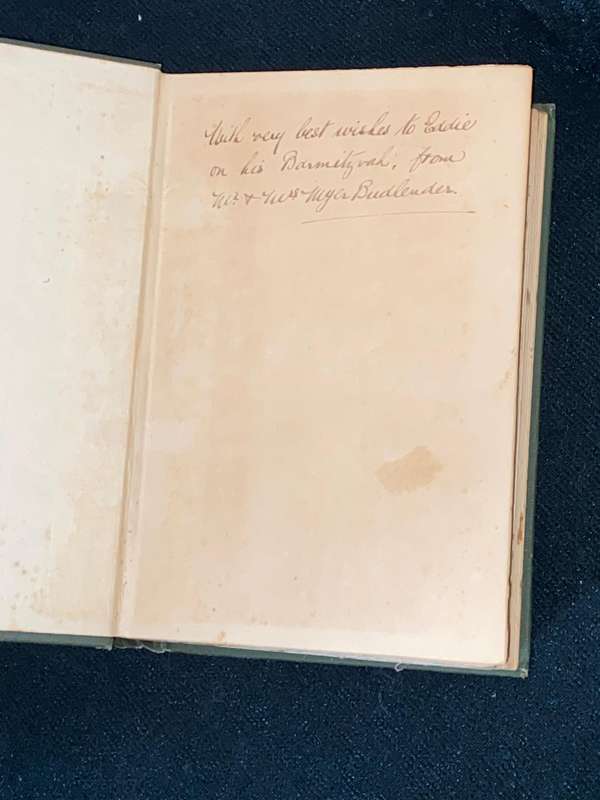 With very best wishes to Eddie
on his Barmitzvah, from
Mr. & Mrs Myer Budlender.